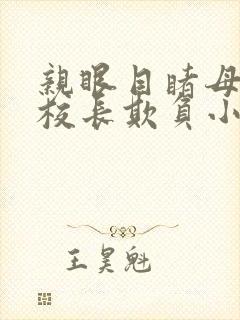 親眼目睹母
校長欺負小
王昊魁